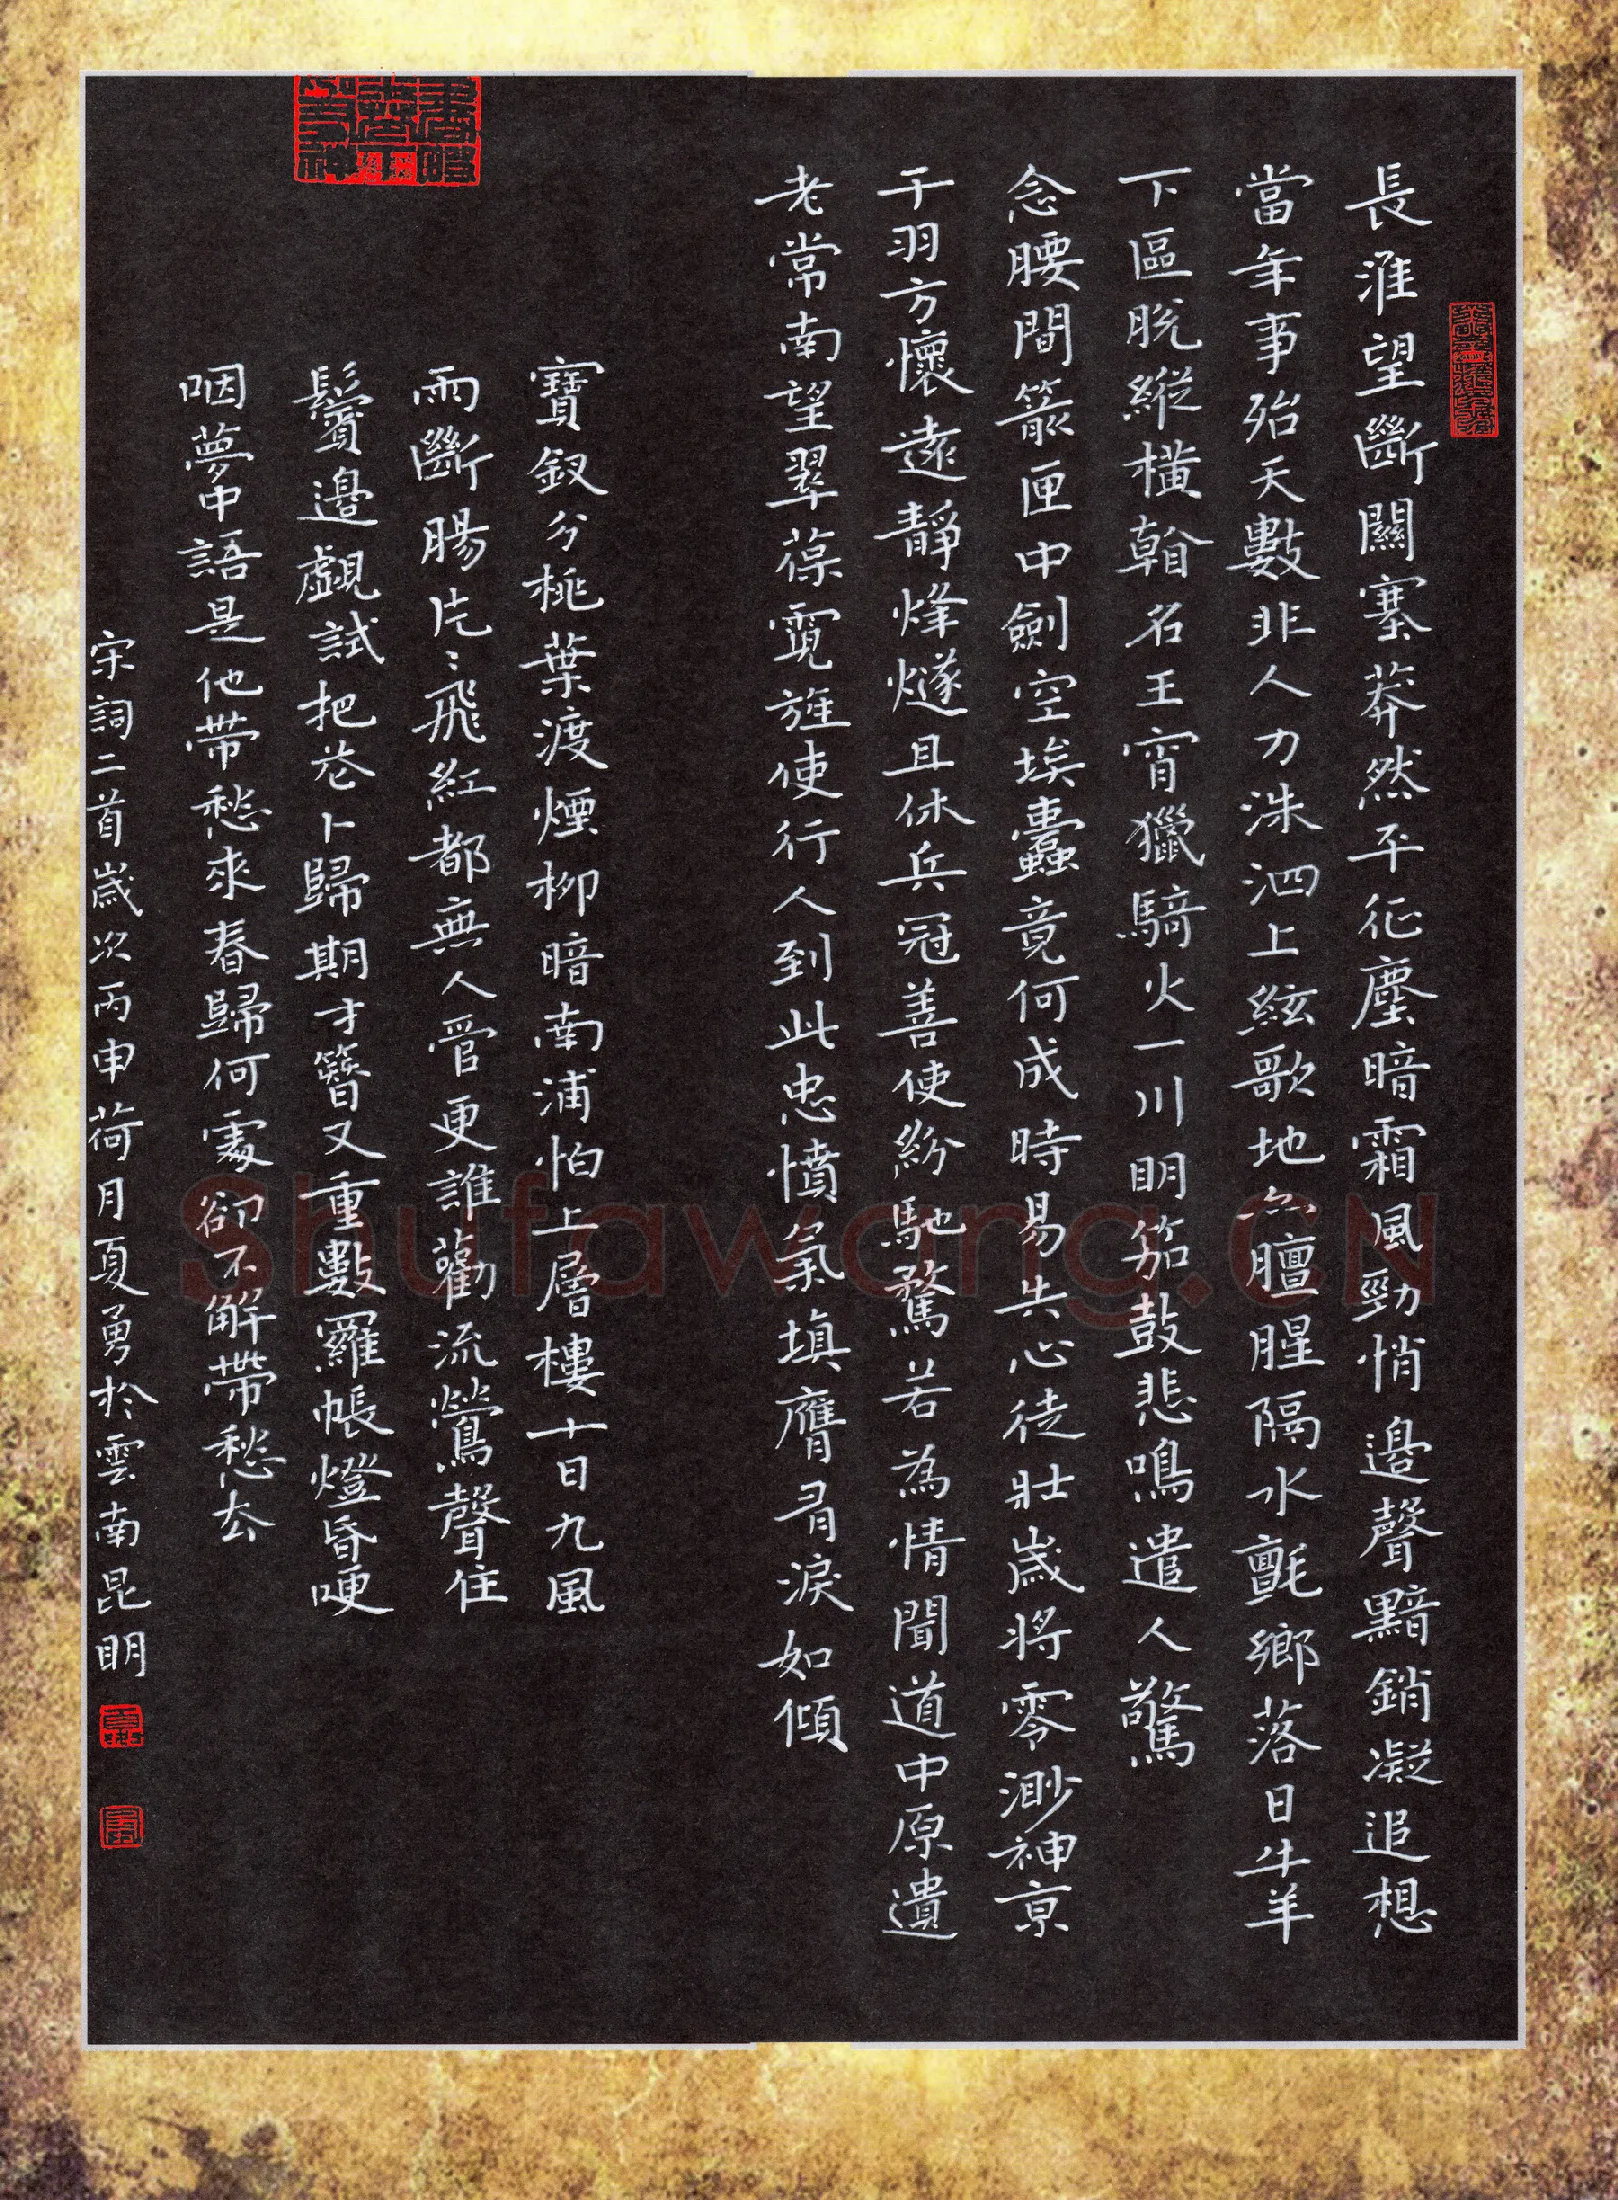 長淮望斷關塞莽然平征塵暗霜風勁悄邊聲黯銷凝追想
當年事殆天數非人力洙泗上絃歌地亦膻腥隔水氈鄉落日牛羊
下區脫縱橫看名王宵獵騎火一川明笳鼓悲鳴遣人驚
念腰間箭匣中劍空埃蠹竟何成時易失心徒壯歲將零渺神京
干羽方懷遠靜烽燧且休兵冠蓋使紛馳騖若為情聞道中原遺
老常南望翠葆霓旌使行人到此忠憤氣填膺有淚如傾
寶釵分桃葉渡煙柳暗南浦怕上層樓十日九風
雨斷腸片〻飛紅都無人管更誰勸流鶯聲住
鬢邊覷試把花卜歸期才簪又重數羅帳燈昏哽
咽夢中語是他帶愁來春歸何處卻不解帶愁去
宋詞二首歲次丙申荷月夏勇於雲南昆明
Shufawang.CN